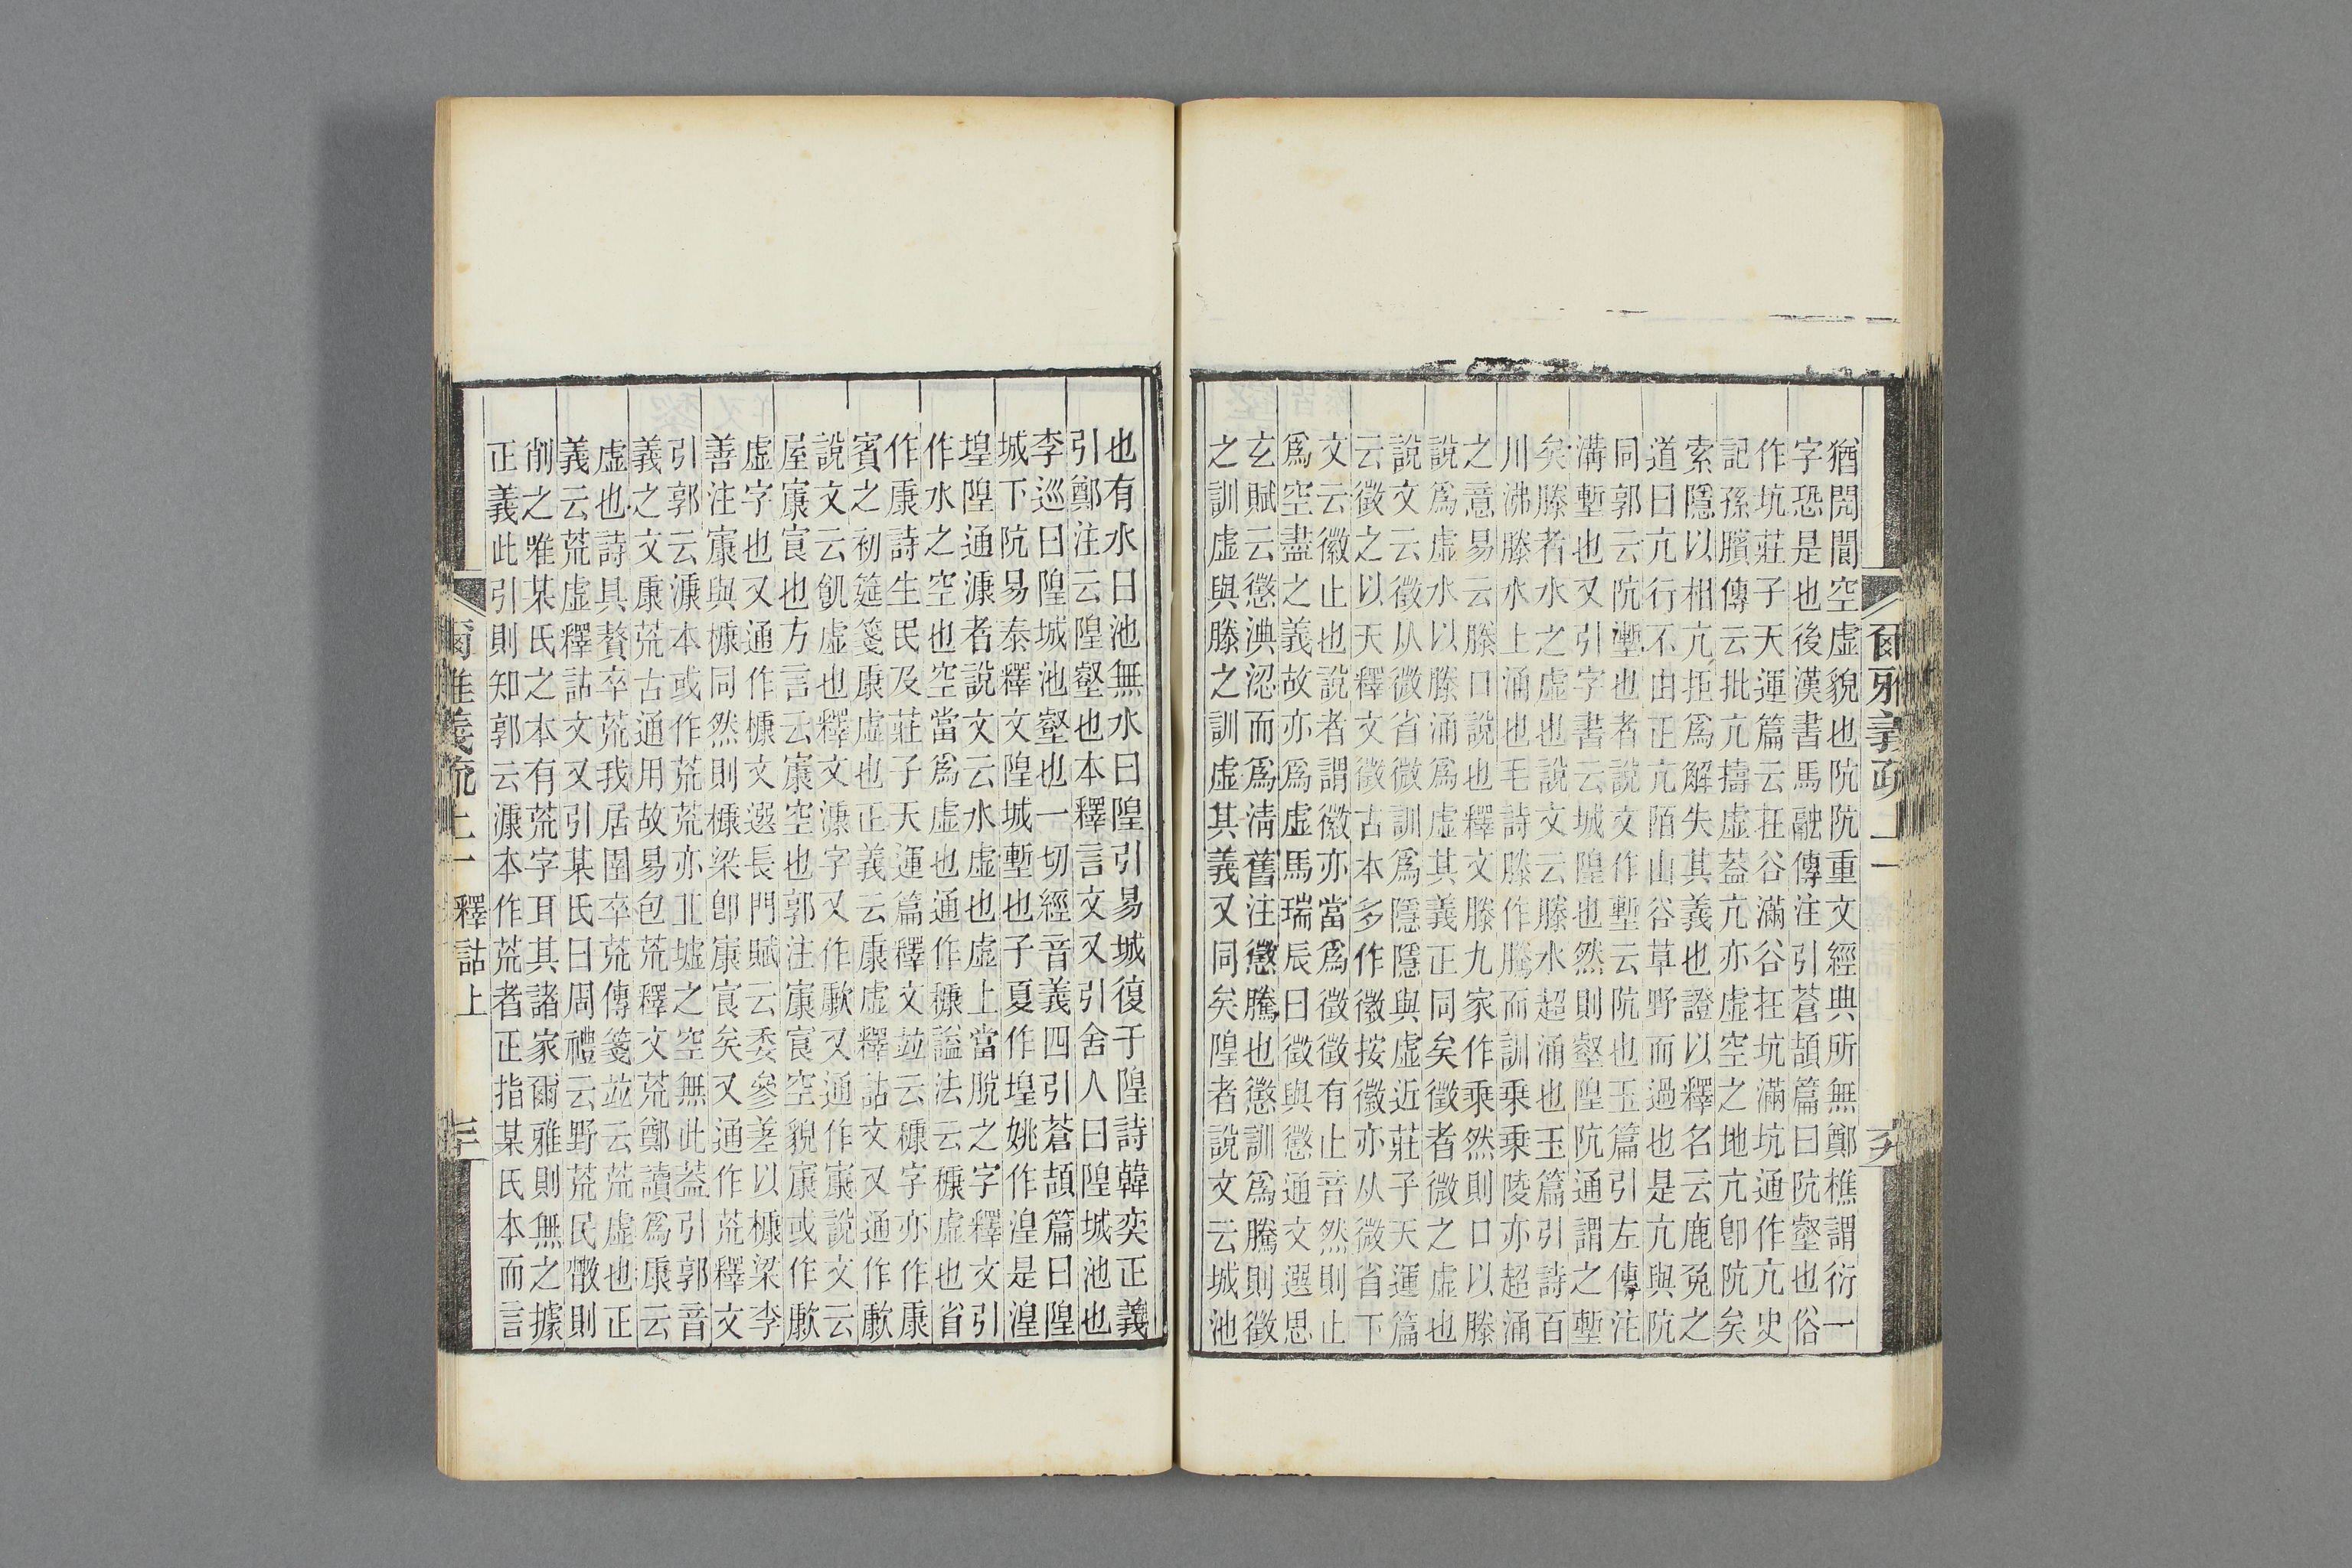 爾雅義疏上一
猶閱閬空虛貌也阬阬重文經典所無鄭樵謂衍一
字恐是也後漢書馬融傳注引蒼頡篇曰阬壑也俗
作坑莊子天運篇云在谷滿谷在坑滿坑通作亢史
記孫臏傳云批亢擣虛蓋亢亦虛空之地亢卽阬矣
索隱以相亢拒爲解失其義也證以釋名云鹿兔之
道曰亢行不由正亢陌山谷草野而過也是亢與阬
同郭云阬壍也者說文作塹云阬也玉篇引左傳注
溝塹也又引字書云城隍也然則壑隍阬通謂之塹
矣滕者水之虛也說文云滕水超涌也玉篇引詩百
川沸滕水上涌也毛詩滕作騰而訓乘乘陵亦超涌
之意易云滕口說也釋文滕九家作乘然則口以滕
說爲虛水以滕涌爲虛其義正同矣徵者微之虛也
說文云徵从微省微訓爲隱隱與虛近莊子天運篇
云徵之以天釋文徵古本多作徽按徽亦从微省下
文云徽止也說者謂徽亦當爲徵徵有止音然則止
爲空盡之義故亦爲虛馬瑞辰曰徵與懲通文選思
玄賦云懲淟涊而爲淸舊注懲騰也懲訓爲騰則徵
之訓虛與滕之訓虛其義又同矣隍者說文云城池
也有水曰池無水曰隍引易城復于隍詩韓奕正義
引鄭注云隍壑也本釋言文又引舍人曰隍城池也
李巡曰隍城池壑也一切經音義四引蒼頡篇曰隍
城下阬易泰釋文隍城塹也子夏作堭姚作湟是湟
堭隍通漮者說文云水虛也虛上當脫之字釋文引
作水之空也空當爲虛也通作穅謚法云穅虛也省
作康詩生民及莊子天運篇釋文竝云穅字亦作康
賓之初筵箋康虛也正義云康虛釋詁文又通作歉
說文云飢虛也釋文漮字又作歉又通作㝩說文云
屋㝩㝗也方言云㝩空也郭注㝩㝗空貌㝩或作歉
虛字也又通作槺文選長門賦云委參差以槺梁李
善注㝩與槺同然則槺梁卽㝩㝗矣又通作荒釋文
引郭云漮本或作荒荒亦丘墟之空無此蓋引郭音
義之文康荒古通用故易包荒釋文荒鄭讀爲康云
虛也詩具贅卒荒我居圉卒荒傳箋竝云荒虛也正
義云荒虛釋詁文又引某氏曰周禮云野荒民散則
削之唯某氏之本有荒字耳其諸家爾雅則無之據
正義此引則知郭云漮本作荒者正指某氏本而言
爾雅義疏上一 釋詁上